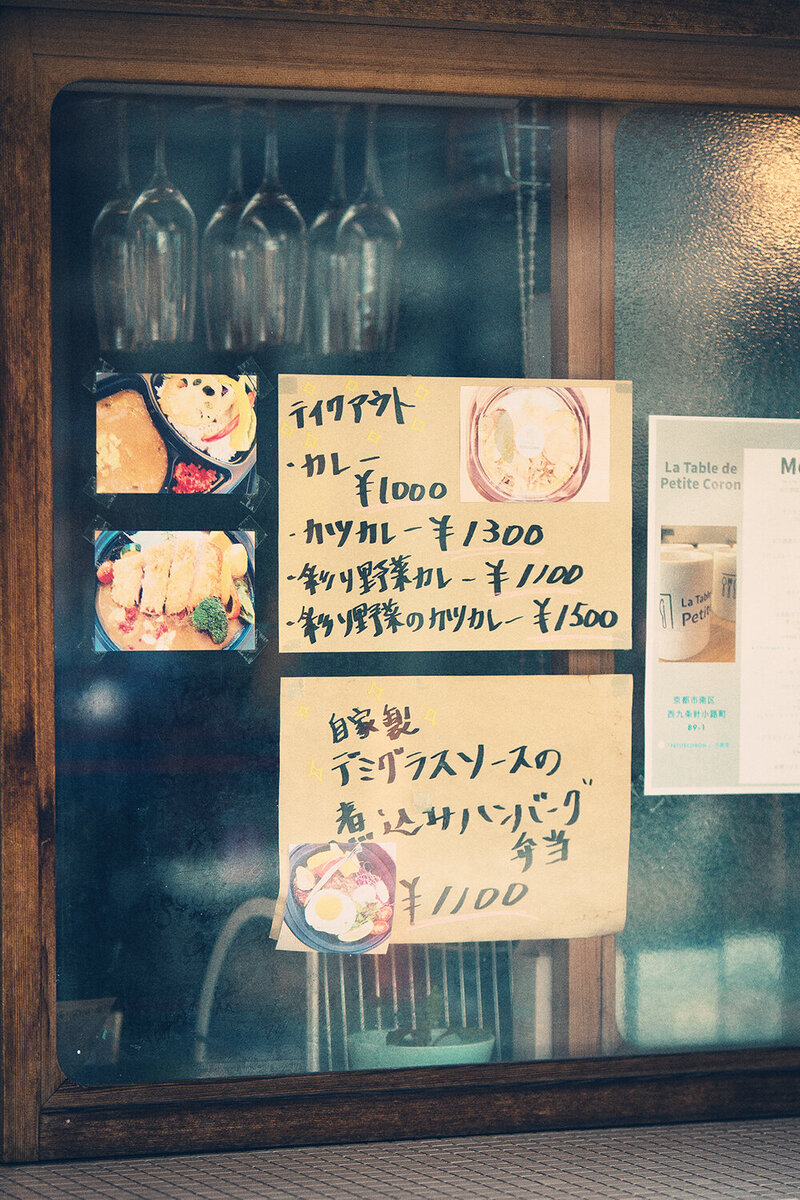 テイクアウト
・カレー
¥1000
・カツカレー ¥1300
・彩り野菜カレー ¥1100
・彩り野菜のカツカレー ¥1500
自家製
デミグラスソースの
煮込みハンバーグ
弁当
¥1100
La Table de
Petite Coron
La Table
Petite
京都市南区
西九条針小路町
89-1